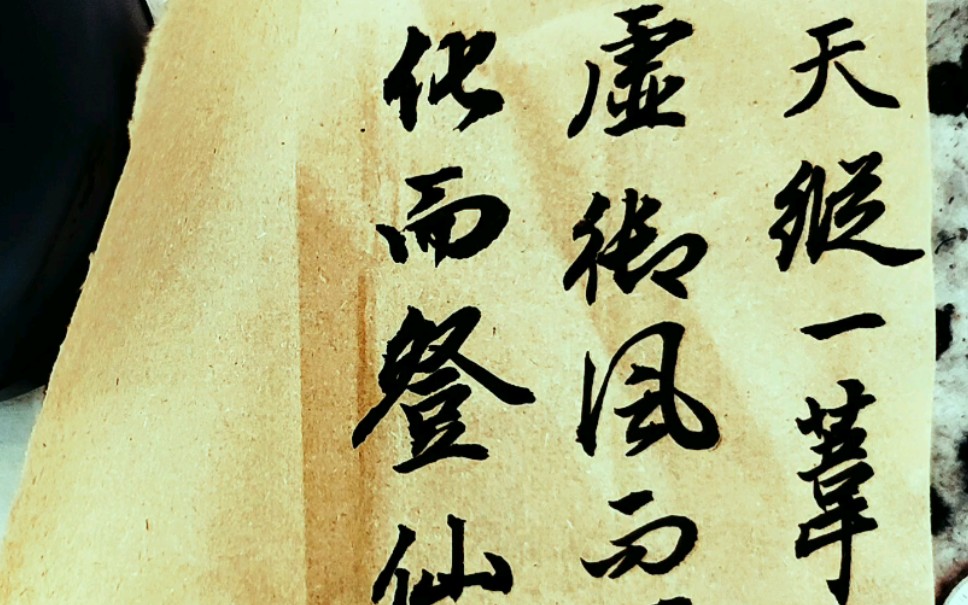 天縱一葦
虛御風而
化而登仙